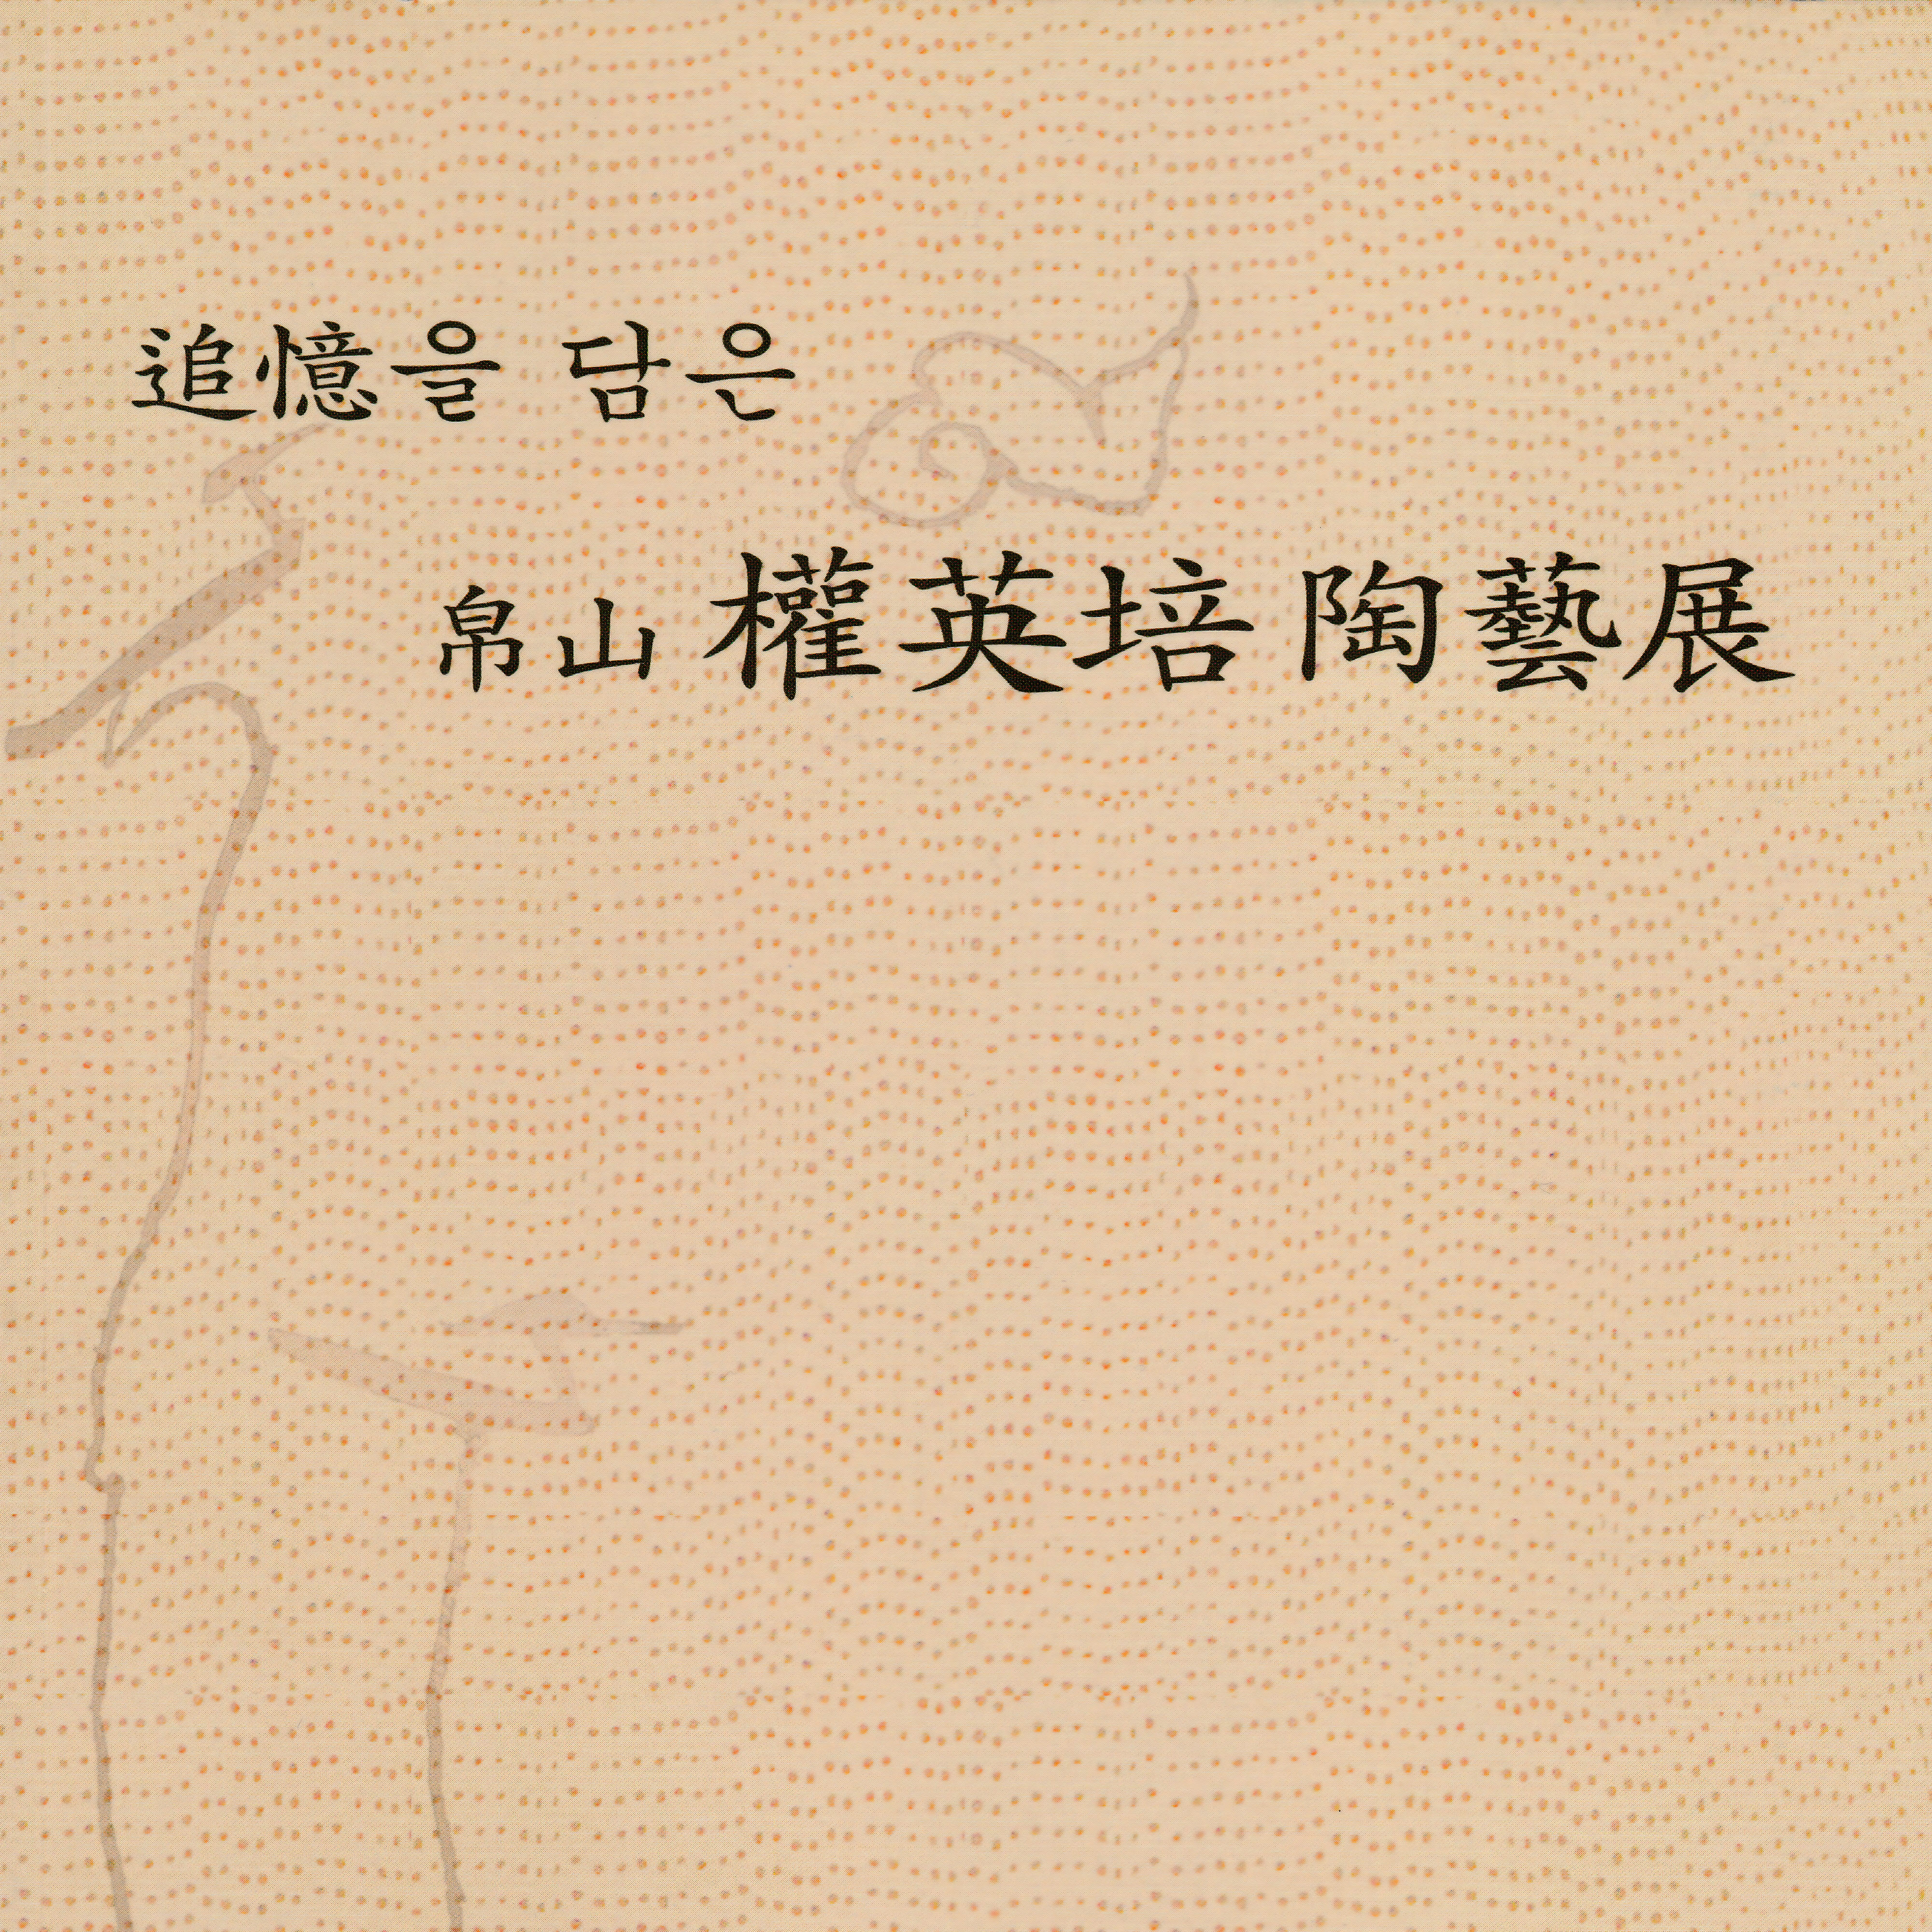 追憶을 담은
帛山 權英培 陶藝展